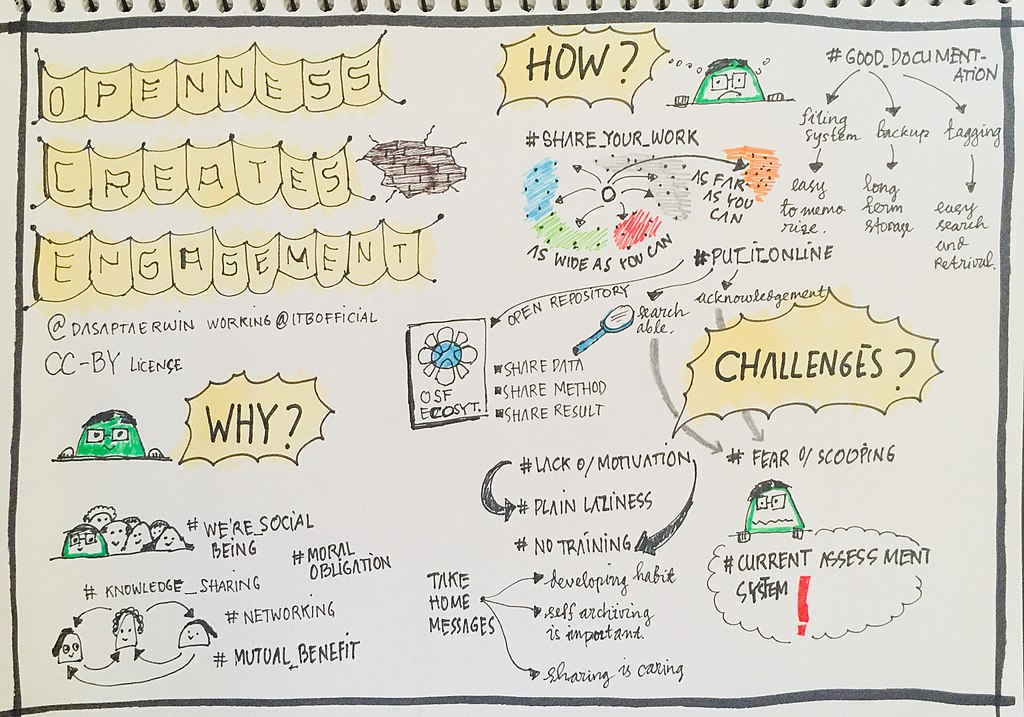 OPENNESS
CREATES
ENGAGEMENT
@DASAPTAERWIN WORKING@ITBOFFICIAL
CC-BY LICENSE
WHY?
# WE'RE_SOCIAL
BEING
# MORAL
OBLIGATION
# KNOWLEDGE_SHARING
# NETWORKING
# MUTUAL_BENEFIT
HOW?
#SHARE_YOUR_WORK
AS FAR-
AS YOU
CAN
AS WIDE AS YOU CAN
#GOOD_DOCUMENT-
ATION
filing
system
backup
tagging
easy
to memo
rize.
long
term
storage
easy
search
and
retrival.
#PUT_IT_ONLINE
OPEN REPOSITORY
search
able.
acknowledgement
OSF
ECOSYT.
SHARE DATA
SHARE METHOD
SHARE RESULT
CHALLENGES?
# LACK O/ MOTIVATION
# PLAIN LAZINESS
# NO TRAINING
# FEAR O/ SCOOPING
#CURRENT ASSESSMENT
SYSTEM !
TAKE
HOME
MESSAGES
developing habit
self archiving
is important.
sharing is caring